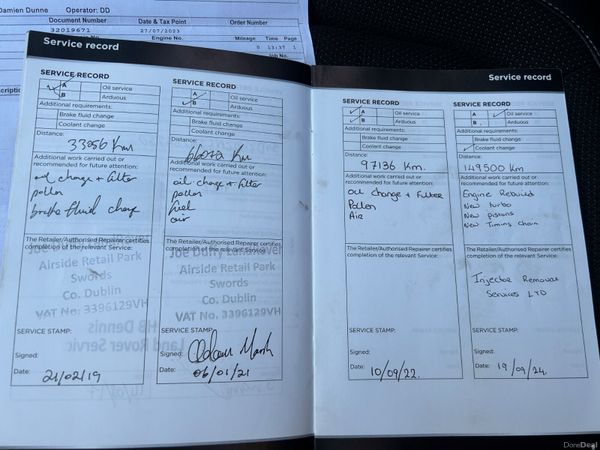 Damien Dunne Operator: DD
Document Number Date & Tax Point Order Number
32019671 27/07/2023
Engine No. Mileage Time Page
0 13:37 1
Service record
SERVICE RECORD
A Oil service
B Arduous
Additional requirements:
Brake fluid change
Coolant change
Distance:
33056 Km
Additional work carried out or
recommended for future attention:
oil change + filter
pollen
brake fluid change
The Retailer/Authorised Repairer certifies
completion of the relevant Service:
Airside Retail Park
Swords
Co. Dublin
VAT No. 3396129VH
SERVICE STAMP:
Signed:
Date: 21/02/19
SERVICE RECORD
A Oil service
B Arduous
Additional requirements:
Brake fluid change
Coolant change
Distance:
66072 Km
Additional work carried out or
recommended for future attention:
oil change + filter
pollen
fuel
air
The Retailer/Authorised Repairer certifies
completion of the relevant Service:
Joe Duffy Landrover
Airside Retail Park
Swords
Co. Dublin
VAT No. 3396129VH
SERVICE STAMP:
Signed:
Date: 06/01/21
Service record
SERVICE RECORD
A Oil service
B Arduous
Additional requirements:
Brake fluid change
Coolant change
Distance:
97136 Km.
Additional work carried out or
recommended for future attention:
Oil Change & Filter
Pollen
Air
The Retailer/Authorised Repairer certifies
completion of the relevant Service:
SERVICE STAMP:
Signed:
Date: 10/09/22.
SERVICE RECORD
A Oil service
B Arduous
Additional requirements:
Brake fluid change
Coolant change
Distance:
149500 Km
Additional work carried out or
recommended for future attention:
Engine Rebuild
New turbo
New pistons
New Timing Chain
The Retailer/Authorised Repairer certifies
completion of the relevant Service:
Injector Removal
Services LTD
SERVICE STAMP:
Signed:
Date: 19/09/24.
DoneDeal